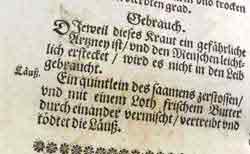 und trocken
vierdten grad.
Gebrauch.
DJeweil dieses Kraut ein gefährliche
Artzney ist / und den Menschen leicht-
lich erstecket / wird es nicht in den Leib
gebraucht.
Läuß. Ein quintlein des saamens zerstossen /
und mit einem Loth frischen Butter
durch einander vermischt / vertreibt und
tödtet die Läuß.